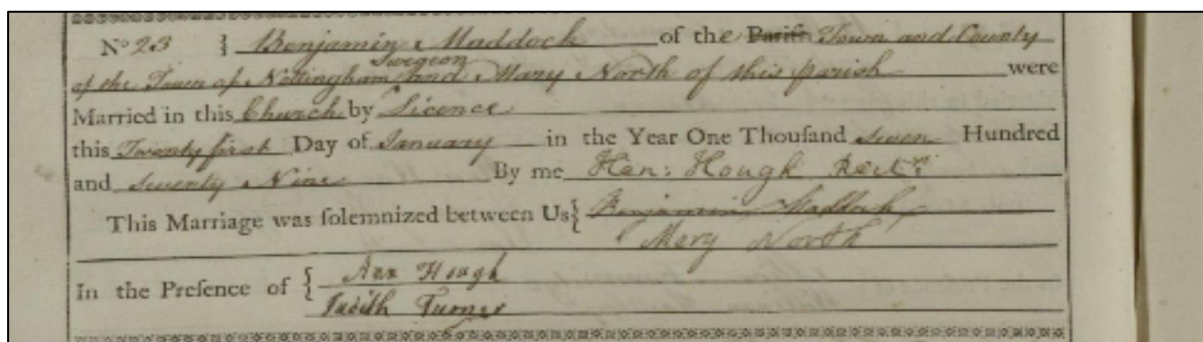 No 23 { Benjamin Maddock of the Parish Town and County
Surgeon
of the Town of Nottingham and Mary North of this parish were
Married in this Church by Licence
this Twenty first Day of January in the Year One Thouſand Seven Hundred
and Seventy Nine By me Hen: Hough Rectr.
This Marriage was ſolemnized between Us { Benjamin Maddock
Mary North
In the Preſence of { Ann Hough
Judith Turner